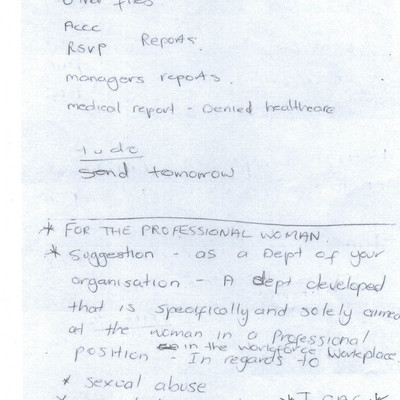 Other files
Accc
RSVP Reports.
managers reports.
medical report - Denied healthcare
Send tomorrow
* FOR THE PROFESSIONAL WOMAN.
* Suggestion - as a Dept of your
organisation - A dept developed
that is specifically and solely aimed
at the woman in a Professional
position - in the workforce workplace.
In regards to
* sexual abuse